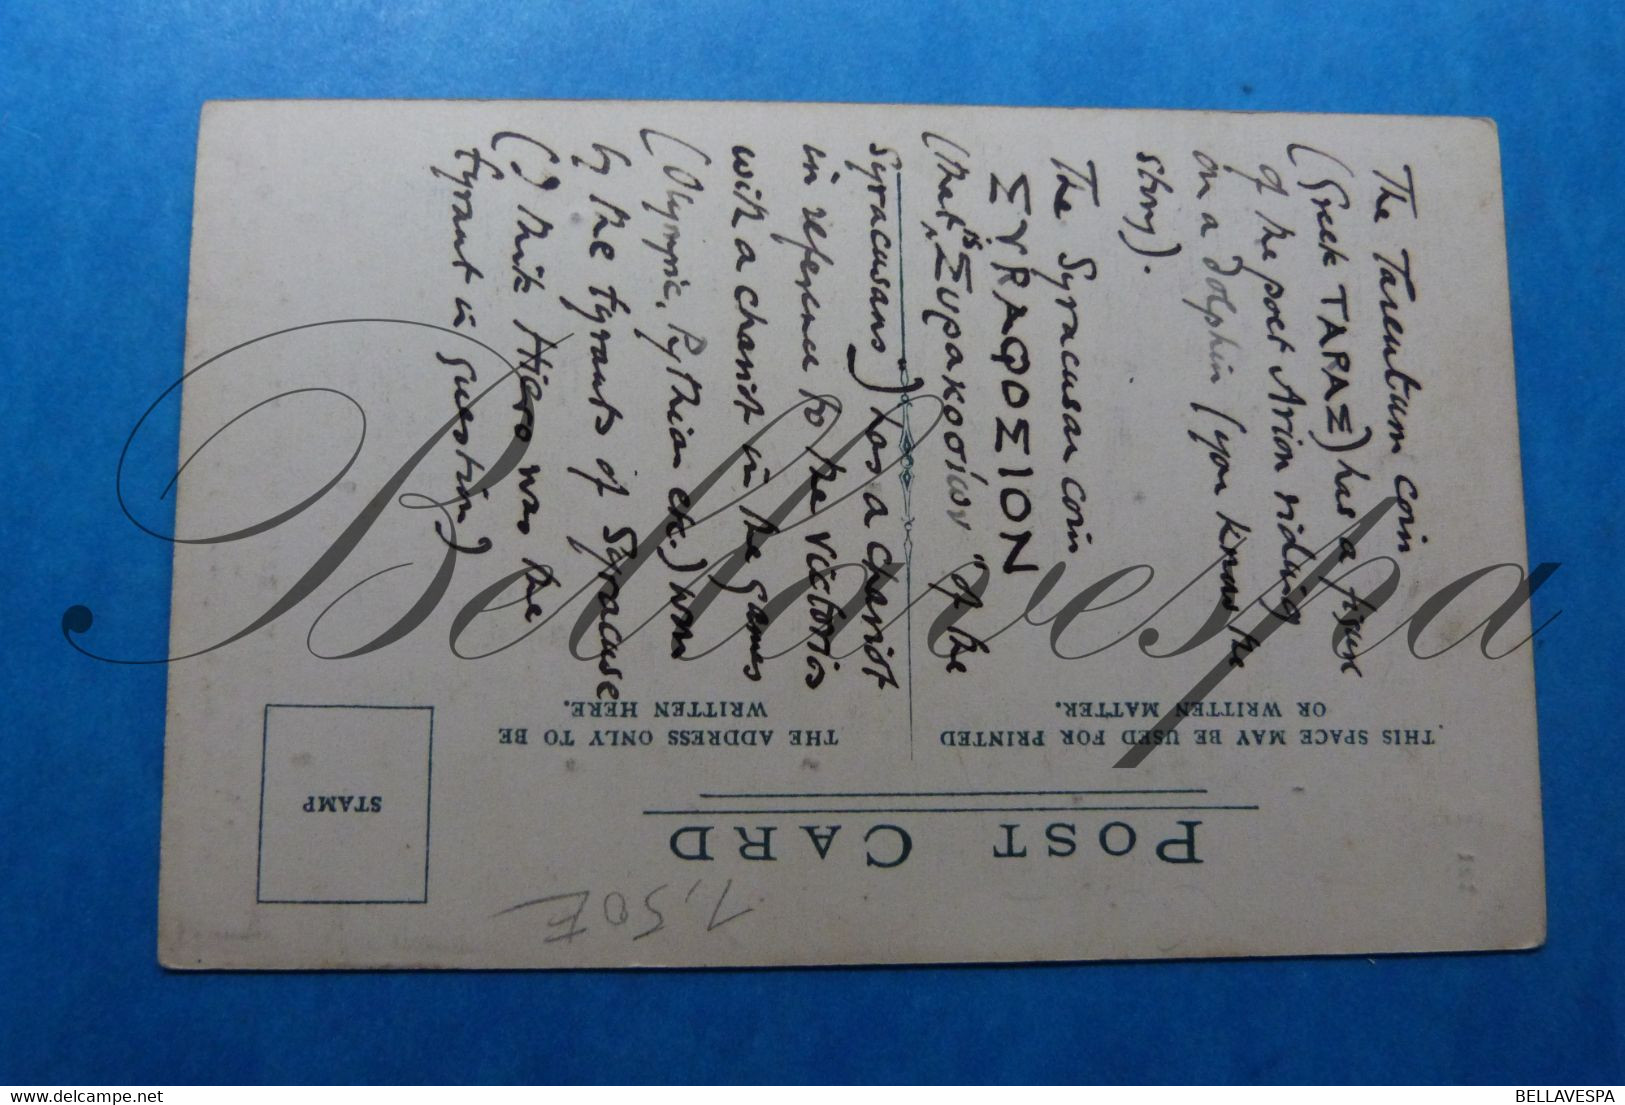 The Tarentum coin
(Greek TAPAΣ) has a figure
of the poet Arion riding
on a dolphin (you know the
story).
The Syracusan coin
ΣΥRΑϘΟΣΙΟΝ
(that is "Συρακοσίων" "of the
Syracusans") has a chariot
in reference to the victories
with a chariot in the games
(Olympic, Pythian etc.) won
by the tyrants of Syracuse
(I think Hiero was the
tyrant in question)
POST CARD
THIS SPACE MAY BE USED FOR PRINTED
OR WRITTEN MATTER.
THE ADDRESS ONLY TO BE
WRITTEN HERE.
STAMP
1,50E
Bellavespa
BELLAVESPA